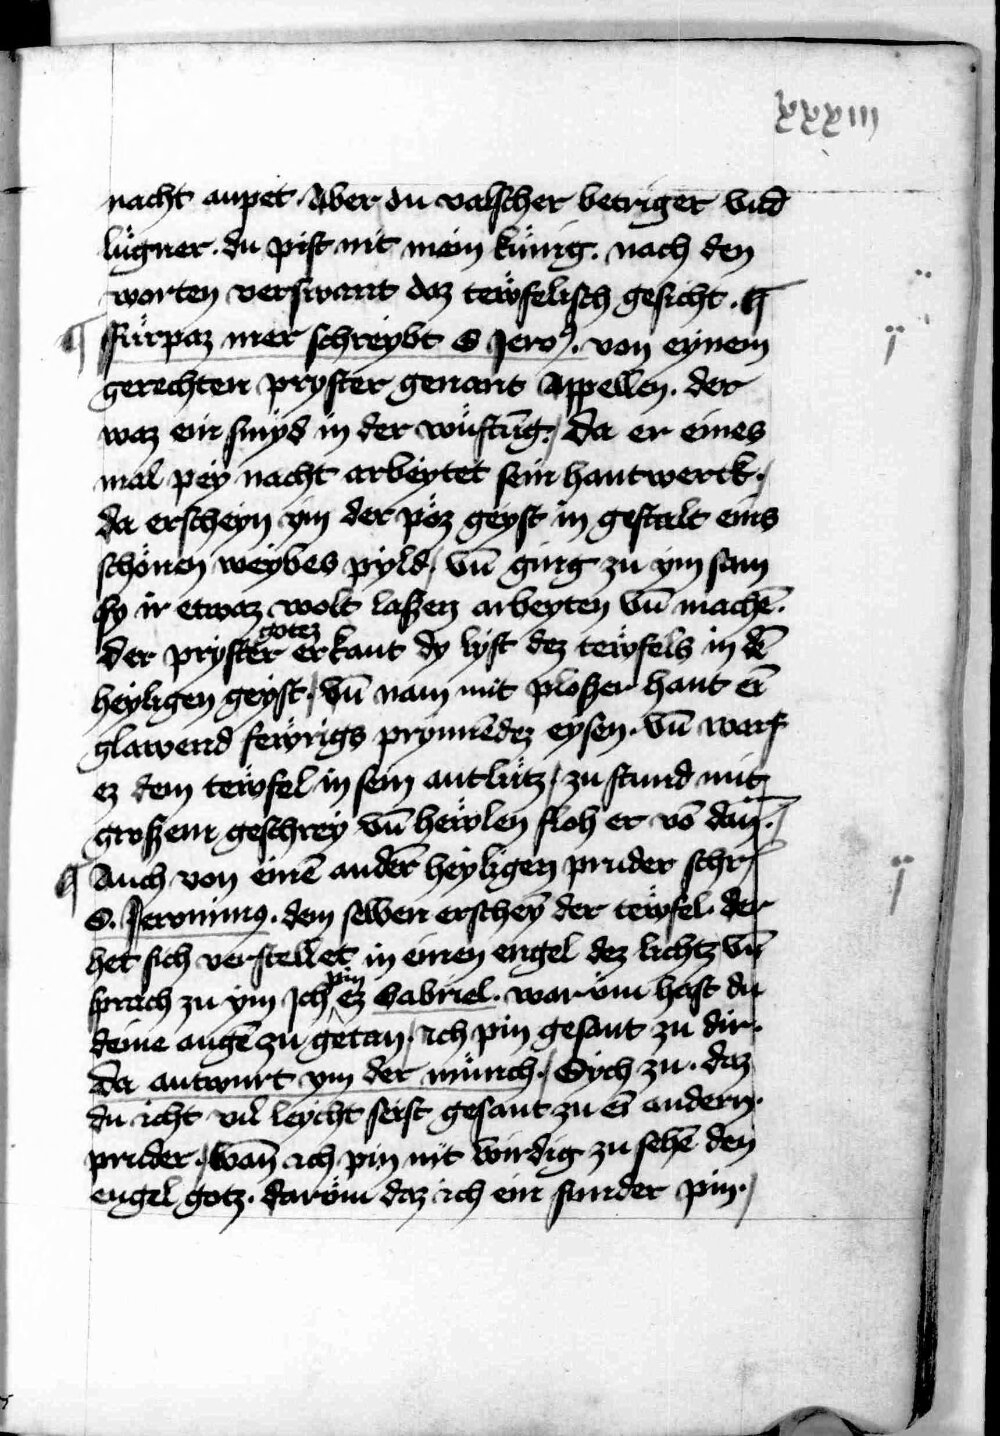 xxxiii
nacht anpet. Aber du valscher betriger vnd
lügner. du pist nit mein künig. nach den
worten verswant daz tewfelisch gesicht. ¶
¶ Fürpaz mer schreybt S Jero9. von eynem
gerechten pryster genant Appellen. der
waz ein smyd in der wüstūg. / Da er eines
mal pey nacht arbeytet sein hantwerck. /
da erscheyn ym der pöz geyst in gestalt eins
schönen weybes pyld / vn̄ ging zu ym sam
sy ir etwaz wolt laßen arbeyten vn̄ machē.
Der pryster gotez erkant dy lyst dez tewfels in dē
heyligen geyst. / vn̄ nam mit ploßer hant ei̅
glawend fewrigs prinnēdez eysen. vn̄ warf
ez dem tewfel in sein antlütz / zu stund mit
großem geschrey vn̄ hewlen floh er vō dan̄. /
¶ Auch von einē ander heyligen pruder schr/
S. Jeronimus. dem selben erscheȳ der tewfel. der
het sich verstellet in einen engel dez lichtz vn̄
sprach zu ym Jch pin ez Gabriel. warüm hast du
deine augē zu getan. / ich pin gesant zu dir.
Da antwurt ym der münch. / Sych zu. daz
du icht vil leycht seist gesant zu ei̅ andern.
pruder. / wan̄ ich pin nit wirdig zu sehē den
engel gotz. darüm daz ich ein sunder pin. /